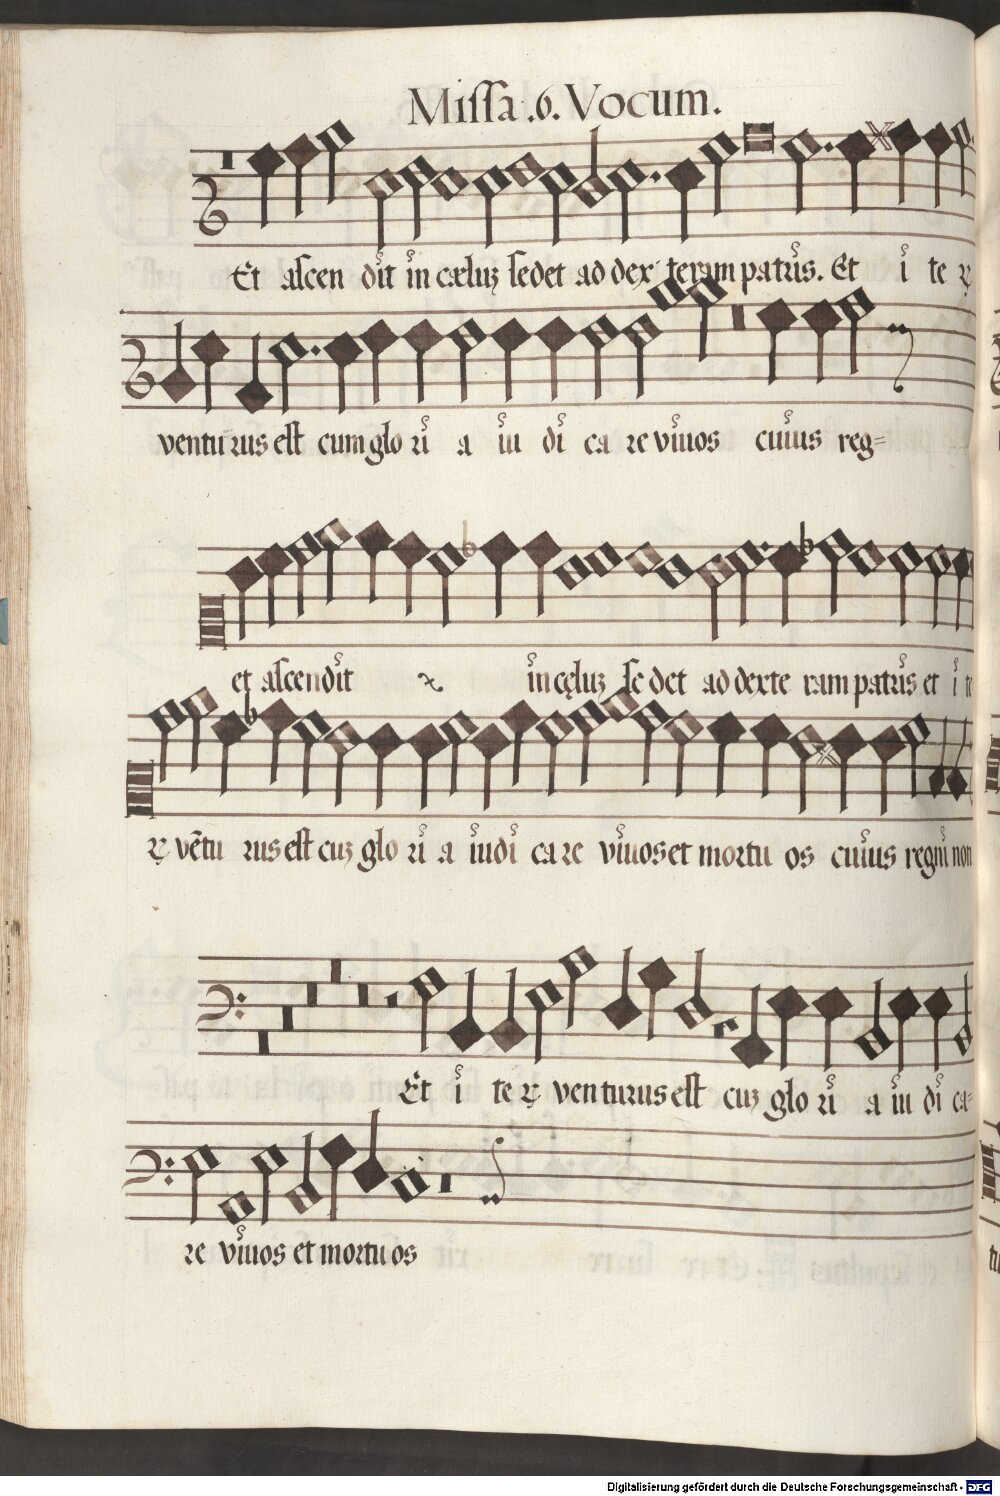 Missa .6. Vocum.
Et ascen dit in cæluz sedet ad dex teram patris. Et i te ꝝ
ventu rus est cum glo ri a iu di ca re vivos cuius reg=
et ascendit in cęluz se det ad dexte ram patris et i te
ꝝ vẽtu rus est cuz glo ri a iudi ca re vivos et mortu os cuius regni non
Et i te ꝝ venturus est cuz glo ri a iu di ca=
re vivos et mortuos
Digitalisierung gefördert durch die Deutsche Forschungsgemeinschaft - DFG